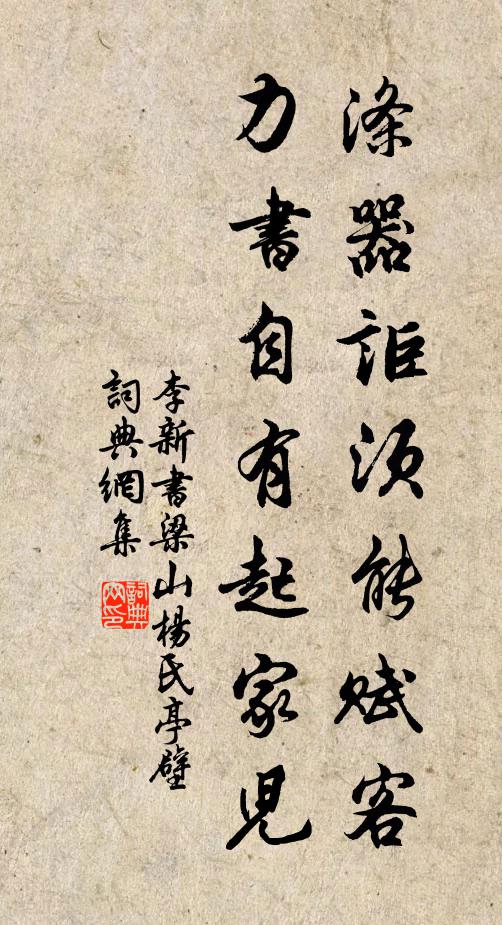 滌器詎須能賦客
力書自有起家兒
李新書梁山楊氏亭壁
詞典網集
詞典網印